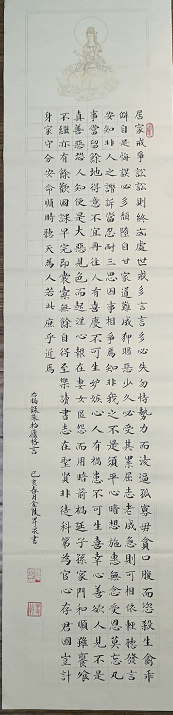 居家戒爭訟訟則終凶處世戒多言言多必失勿恃勢力而凌逼孤寡毋貪口腹而恣殺生禽乖
僻自是悔誤必多頹隋自甘家道難成狎昵惡少久必受其累屈志老成急則可相依輕聽發言
安知非人之譖訴當忍耐三思因事相爭焉知非我之不是須平心暗想施惠無念受恩莫忘凡
事當留餘地得意不宜再往人有喜慶不可生妒嫉心人有禍患不可生喜幸心善欲人見不是
真善惡恐人知便是大惡見色而起淫心報在妻女匿怨而用暗箭禍延子孫家門和順雖饔飧
不繼亦有餘歡國課早完即囊橐無餘自得至樂讀書志在聖賢非徒科第為官心存君國豈計
身家守分安命順時聽天為人若此庶乎近焉
右摘錄朱柏廬格言
己亥春月金陵昇辰書